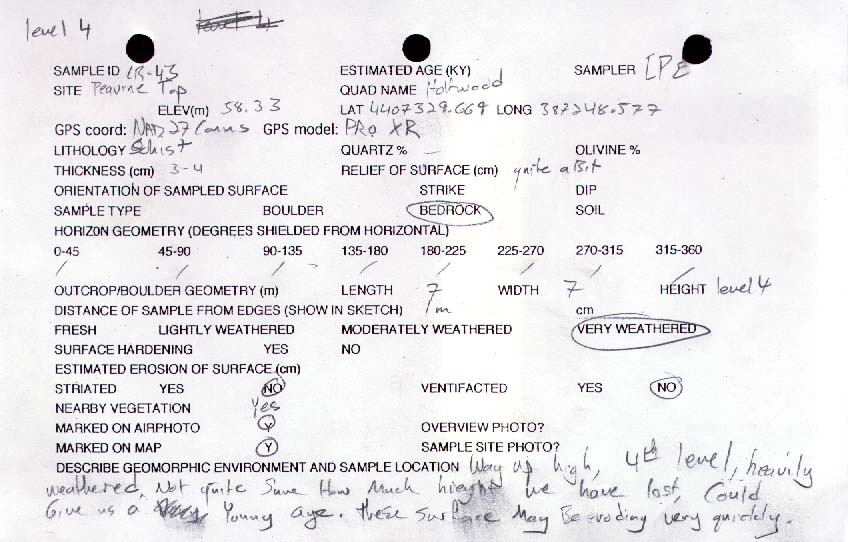 level 4
SAMPLE ID LR-43 ESTIMATED AGE (KY) SAMPLER LPE
SITE Peavine Top QUAD NAME Holtwood
ELEV(m) 58.33 LAT 4407329.669 LONG 387248.577
GPS coord: NAD 27 Conus GPS model: PRO XR
LITHOLOGY Schist QUARTZ % – OLIVINE %
THICKNESS (cm) 3-4 RELIEF OF SURFACE (cm) quite a Bit
ORIENTATION OF SAMPLED SURFACE STRIKE DIP
SAMPLE TYPE BOULDER BEDROCK SOIL
HORIZON GEOMETRY (DEGREES SHIELDED FROM HORIZONTAL)
0-45 45-90 90-135 135-180 180-225 225-270 270-315 315-360
/ / / / / / / /
OUTCROP/BOULDER GEOMETRY (m) LENGTH 7 WIDTH 7 HEIGHT level 4
DISTANCE OF SAMPLE FROM EDGES (SHOW IN SKETCH) 1m cm
FRESH LIGHTLY WEATHERED MODERATELY WEATHERED VERY WEATHERED
SURFACE HARDENING YES NO
ESTIMATED EROSION OF SURFACE (cm)
STRIATED YES NO VENTIFACTED YES NO
NEARBY VEGETATION Yes
MARKED ON AIRPHOTO Y OVERVIEW PHOTO?
MARKED ON MAP Y SAMPLE SITE PHOTO?
DESCRIBE GEOMORPHIC ENVIRONMENT AND SAMPLE LOCATION Way up high, 4th level, heavily
weathered, Not quite Sure How Much hieght we have lost, Could
Give us a Young age. these surface May Be eroding very quickly.